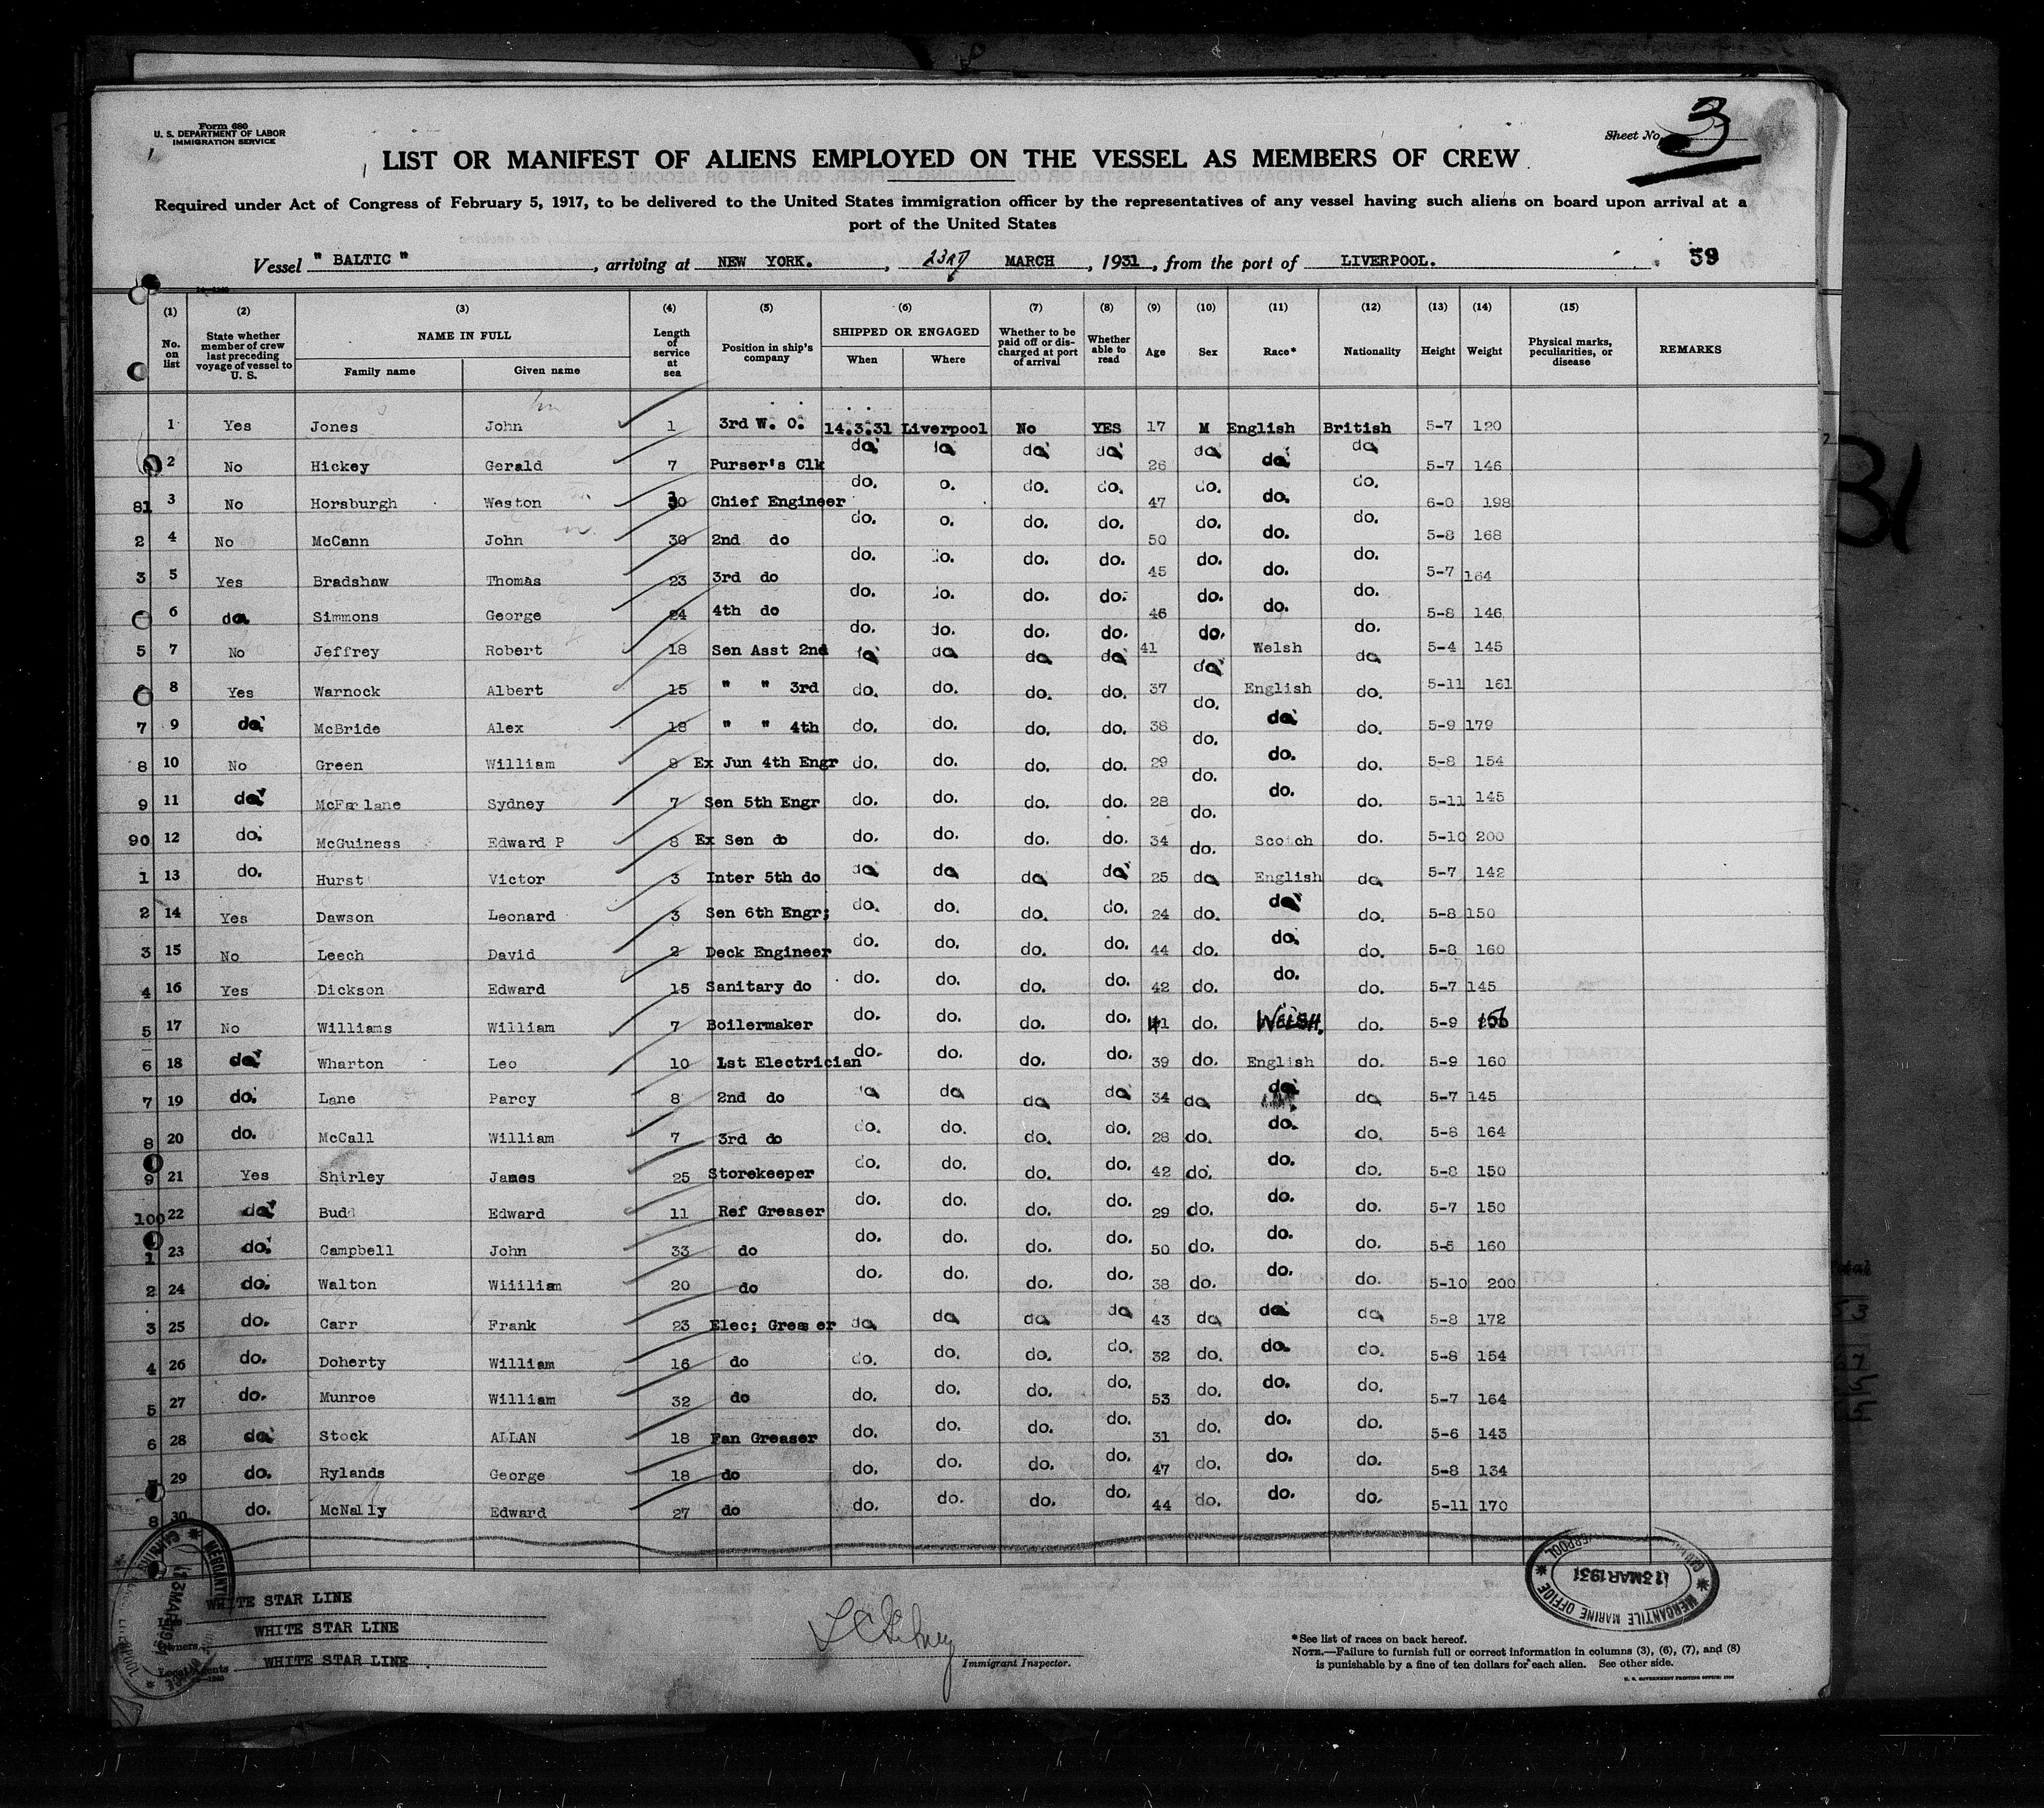 Form 680
U. S. DEPARTMENT OF LABOR
IMMIGRATION SERVICE
Sheet No. 3
LIST OR MANIFEST OF ALIENS EMPLOYED ON THE VESSEL AS MEMBERS OF CREW
Required under Act of Congress of February 5, 1917, to be delivered to the United States immigration officer by the representatives of any vessel having such aliens on board upon arrival at a
port of the United States
Vessel "BALTIC", arriving at NEW YORK., 23RD MARCH, 1931, from the port of LIVERPOOL. 59
(1) (2) (3) (4) (5) (6) (7) (8) (9) (10) (11) (12) (13) (14) (15)
No. on list State whether member of crew last preceding voyage of vessel to U. S. NAME IN FULL Family name Given name Length of service at sea Position in ship's company SHIPPED OR ENGAGED When Where Whether to be paid off or discharged at port of arrival Whether able to read Age Sex Race* Nationality Height Weight Physical marks, peculiarities, or disease REMARKS
1 Yes Jones John 1 3rd W. O. 14.3.31 Liverpool No YES 17 M English British 5-7 120
2 No Hickey Gerald 7 Purser's Clk do do do do 26 do do do 5-7 146
81 3 No Horsburgh Weston 30 Chief Engineer do. o. do. do. 47 do. do. do. 6-0 198
2 4 No McCann John 30 2nd do do. o. do. do. 50 do. do. do. 5-8 168
3 5 Yes Bradshaw Thomas 23 3rd do do. do. do. do. 45 do. do. do. 5-7 164
6 do Simmons George 24 4th do do. do. do. do. 46 do. do. do. 5-8 146
5 7 No Jeffrey Robert 18 Sen Asst 2nd do. do. do. do. 41 do. Welsh do. 5-4 145
8 Yes Warnock Albert 15 " " 3rd do. do. do. do. 37 do. English do. 5-11 161
7 9 do. McBride Alex 18 " " 4th do. do. do. do. 38 do. do. do. 5-9 179
8 10 No Green William 9 Ex Jun 4th Engr do. do. do. do. 29 do. do. do. 5-8 154
9 11 do. McFarlane Sydney 7 Sen 5th Engr do. do. do. do. 28 do. do. do. 5-11 145
90 12 do. McGuiness Edward P 8 Ex Sen do do. do. do. do. 34 do. Scotch do. 5-10 200
1 13 do. Hurst Victor 3 Inter 5th do do do do do 25 do English do 5-7 142
2 14 Yes Dawson Leonard 3 Sen 6th Engr; do. do. do. do. 24 do. do. do. 5-8 150
3 15 No Leech David 2 Deck Engineer do. do. do. do. 44 do. do. do. 5-8 160
4 16 Yes Dickson Edward 15 Sanitary do do. do. do. do. 42 do. do. do. 5-7 145
5 17 No Williams William 7 Boilermaker do. do. do. do. 41 do. WELSH. do. 5-9 156
6 18 do. Wharton Leo 10 1st Electrician do. do. do. do. 39 do. English do. 5-9 160
7 19 do. Lane Parcy 8 2nd do do do do do 34 do do do 5-7 145
8 20 do. McCall William 7 3rd do do. do. do. do. 28 do. do. do. 5-8 164
9 21 Yes Shirley James 25 Storekeeper do. do. do. do. 42 do. do. do. 5-8 150
100 22 do. Budd Edward 11 Ref Greaser do. do. do. do. 29 do. do. do. 5-7 150
1 23 do. Campbell John 33 do do. do. do. do. 50 do. do. do. 5-8 160
2 24 do. Walton Wiilliam 20 do do. do. do. do. 38 do. do. do. 5-10 200
3 25 do. Carr Frank 23 Elec; Greaser do do do do 43 do do do 5-8 172
4 26 do. Doherty William 16 do do. do. do. do. 32 do. do. do. 5-8 154
5 27 do. Munroe William 32 do do. do. do. do. 53 do. do. do. 5-7 164
6 28 do. Stock ALLAN 18 Fan Greaser do. do. do. do. 31 do. do. do. 5-6 143
29 do. Rylands George 18 do do. do. do. do. 47 do. do. do. 5-8 134
8 30 do. McNally Edward 27 do do. do. do. do. 44 do. do. do. 5-11 170
WHITE STAR LINE
Owners WHITE STAR LINE
Local Agents WHITE STAR LINE
Immigrant Inspector.
MERCANTILE MARINE OFFICE
13 MAR 1931
LIVERPOOL
*See list of races on back hereof.
NOTE.—Failure to furnish full or correct information in columns (3), (6), (7), and (8)
is punishable by a fine of ten dollars for each alien. See other side.
U. S. GOVERNMENT PRINTING OFFICE
31